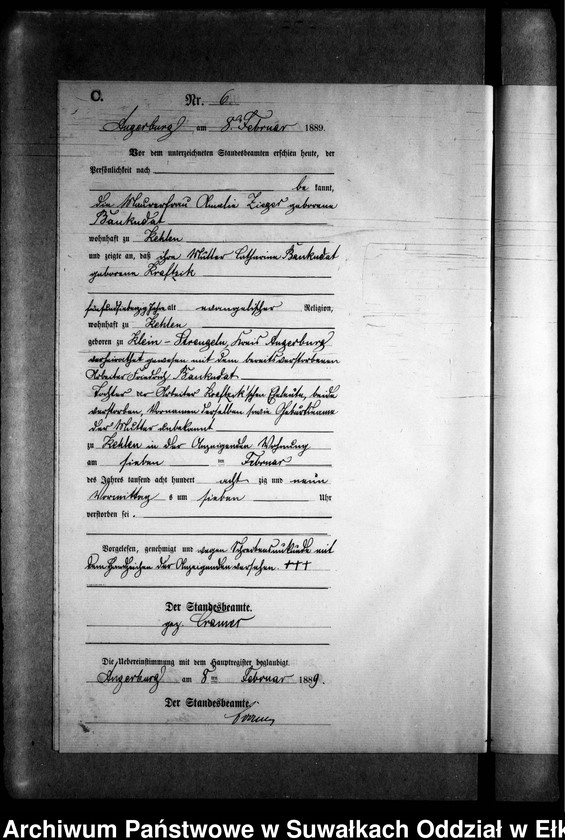 C.
Nr. 6.
Angerburg am 8ten Februar 1889.
Vor dem unterzeichneten Standesbeamten erschien heute, der
Persönlichkeit nach
be kannt,
die Maurerfrau Amalie Zieger geborene
Bankudat
wohnhaft zu Kehlen
und zeigte an, daß ihre Mutter Catharine Bankudat
geborene
fünfundsiebenzig Jahre alt evangelischer Religion,
wohnhaft zu Kehlen
geboren zu Klein-Strengeln, Kreis Angerburg
verheirathet gewesen mit dem bereits verstorbenen
Arbeiter Friedrich Bankudat
Tochter der Arbeiter Eheleute, beide
verstorben, Vornamen derselben sowie Geburtsname
der Mutter unbekannt
zu Kehlen in der Anzeigenden Wohnung
am sieben ten Februar
des Jahres tausend acht hundert acht zig und neun
Vormittag s um sieben Uhr
verstorben sei.
Vorgelesen, genehmigt und wegen Schreibensunkunde mit
dem Handzeichen der Anzeigenden versehen. +++
Der Standesbeamte.
gez. Cramer
Die Uebereinstimmung mit dem Hauptregister beglaubigt
Angerburg am 8ten Februar 1889.
Der Standesbeamte.
Archiwum Państwowe w Suwałkach Oddział w Ełk